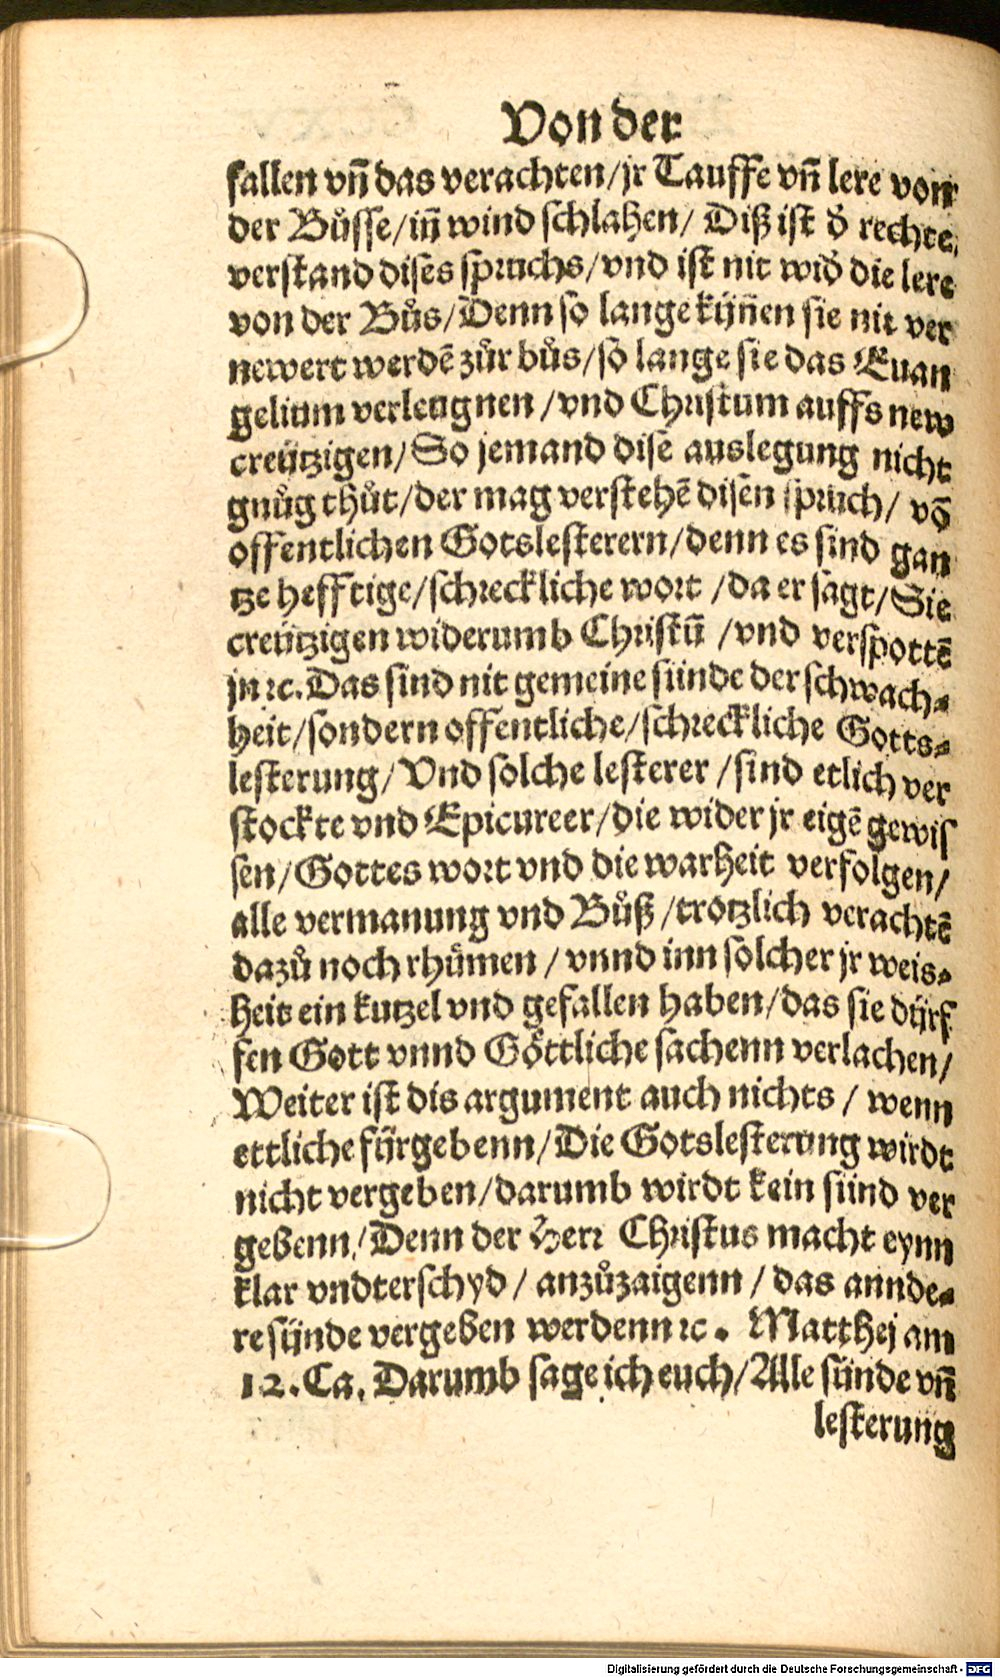 Von der
fallen vñ das verachten/jr Tauffe vñ lere von
der Bůsse/iñ wind schlahen/ Diß ist d̓ rechte,
verstand dises spruchs/vnd ist nit wid̓ die lere
von der Bůs/Denn so lange kÿñen sie nit ver
newert werdē zůr bůs/so lange sie das Euan
gelium verleugnen /vnd Christum auffs new
creützigen/So jemand dise auslegung nicht
gnůg thůt/der mag verstehē disen spruch/ vō
offentlichen Gotslesterern/denn es sind gan
tze hefftige/schreckliche wort /da er sagt/Sie
creützigen widerumb Christū /vnd verspottē
jn ꝛc. Das sind nit gemeine sünde der schwach⸗
heit/sondern offentliche/schreckliche Gotts⸗
lesterung/Vnd solche lesterer /sind etlich ver
stockte vnd Epicureer/die wider jr eigē gewis
sen/Gottes wort vnd die warheit verfolgen/
alle vermanung vnd Bůß /trotzlich verachtē
dazů noch rhůmen / vnnd inn solcher jr weis⸗
heit ein kutzel vnd gefallen haben/das sie dÿrf
fen Gott vnnd Gȯttliche sachenn verlachen/
Weiter ist dis argument auch nichts / wenn
ettliche fÿrgebenn/Die Gotslesterung wirdt
nicht vergeben/darumb wirdt kein sünd ver
gebenn/Denn der Herr Christus macht eynn
klar vndterschyd / anzůzaigenn / das annde⸗
re sÿnde vergeben werdenn ꝛc. Matthej am
12. Ca. Darumb sage ich euch/Alle sünde vñ
lesterung
Digitalisierung gefördert durch die Deutsche Forschungsgemeinschaft - DFG